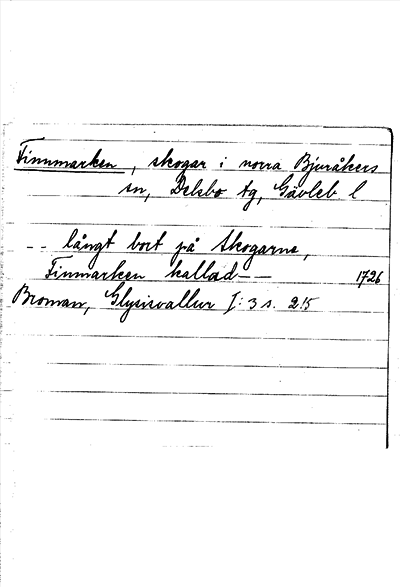 Finnmarken, skogar i norra Bjuråkers
sn, Delsbo tg, Gävleb l
-- långt bort på skogarne,
Finmarken kallad-- 1726
Broman, Glysisvallur I: 3 s. 215